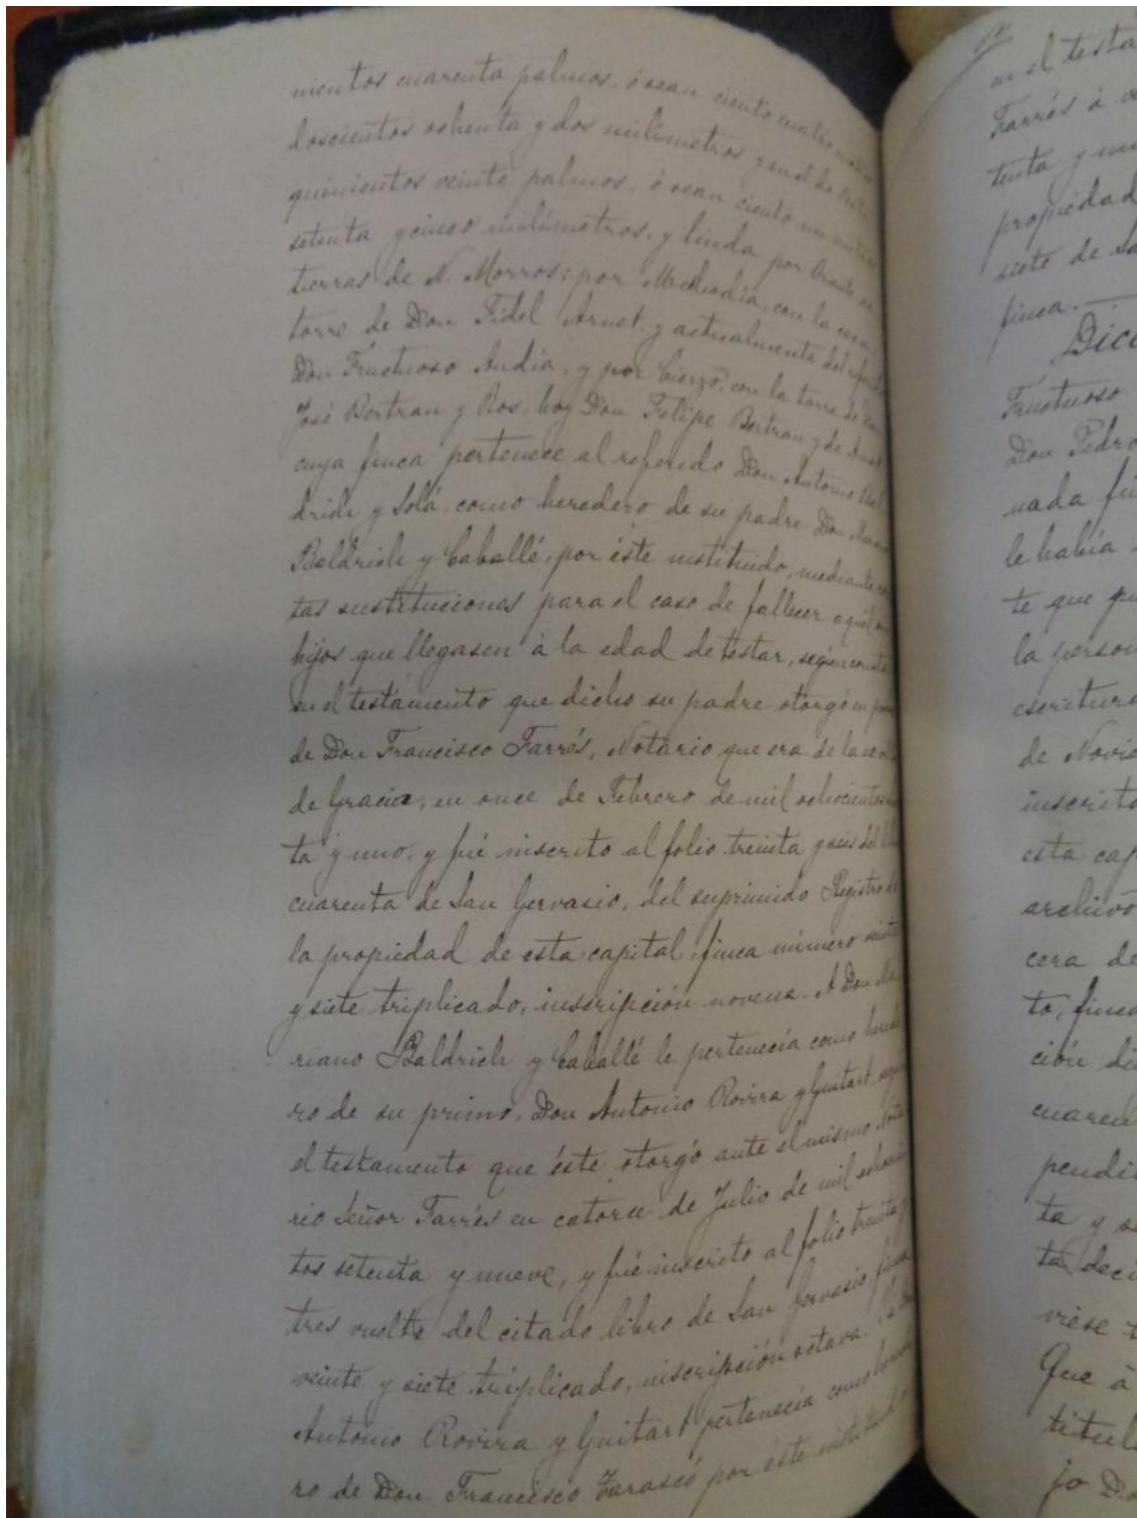 nientos cuarenta palmos, ó sean ciento cuatro
doscientos ochenta y dos milímetros y en el de
quinientos veinte palmos, ó sean ciento un metros
setenta y cinco milímetros, y linda por Oriente con
tierras de N. Morros; por Mediodía, con la casa
torre de Don Fidel Arnet, y actualmente del
Don Fructuoso Andía, y por Cierzo, con la torre de Don
José Bertran y Ros, hoy Don Felipe Bertran y de
cuya finca pertenece al referido Don Antonio Bal
drich y Solá como heredero de su padre Don
Baldrich y Caballé, por éste instituido, mediante
tas sustituciones para el caso de fallecer aquél sin
hijos que llegasen á la edad de testar, según consta
en el testamento que dicho su padre otorgó en
de Don Francisco Farrés, Notario que era de la
de Gracia, en once de Febrero de mil ochocientos
ta y uno, y fué inscrito al folio treinta y seis del
cuarenta de San Gervasio, del suprimido Registro de
la propiedad de esta capital, finca número veinte
y siete triplicado, inscripción novena. A Don Ma
riano Baldrich y Caballé le pertenecía como herede
ro de su primo, Don Antonio Rovira y Guitart, según
el testamento que éste otorgó ante el mismo Nota
rio Señor Farrés en catorce de Julio de mil ochocien
tos setenta y nueve, y fué inscrito al folio treinta y
tres vuelto del citado libro de San Gervasio, finca
veinte y siete triplicado, inscripción octava.
Antonio Rovira y Guitart pertenecía como herede
ro de Don Francisco Tarascó por éste instituido
en el testa
Farrés á
tenta y
propiedad
siete de
finca.
Dice
Fructuoso
Don Pedro
nada
le había
te que
la person
escritura
de Novie
inscrito
esta cap
archivo
cera de
to, finca
ción di
cuaren
pendi
ta y
ta deci
viese
Que á
titul
jo Do